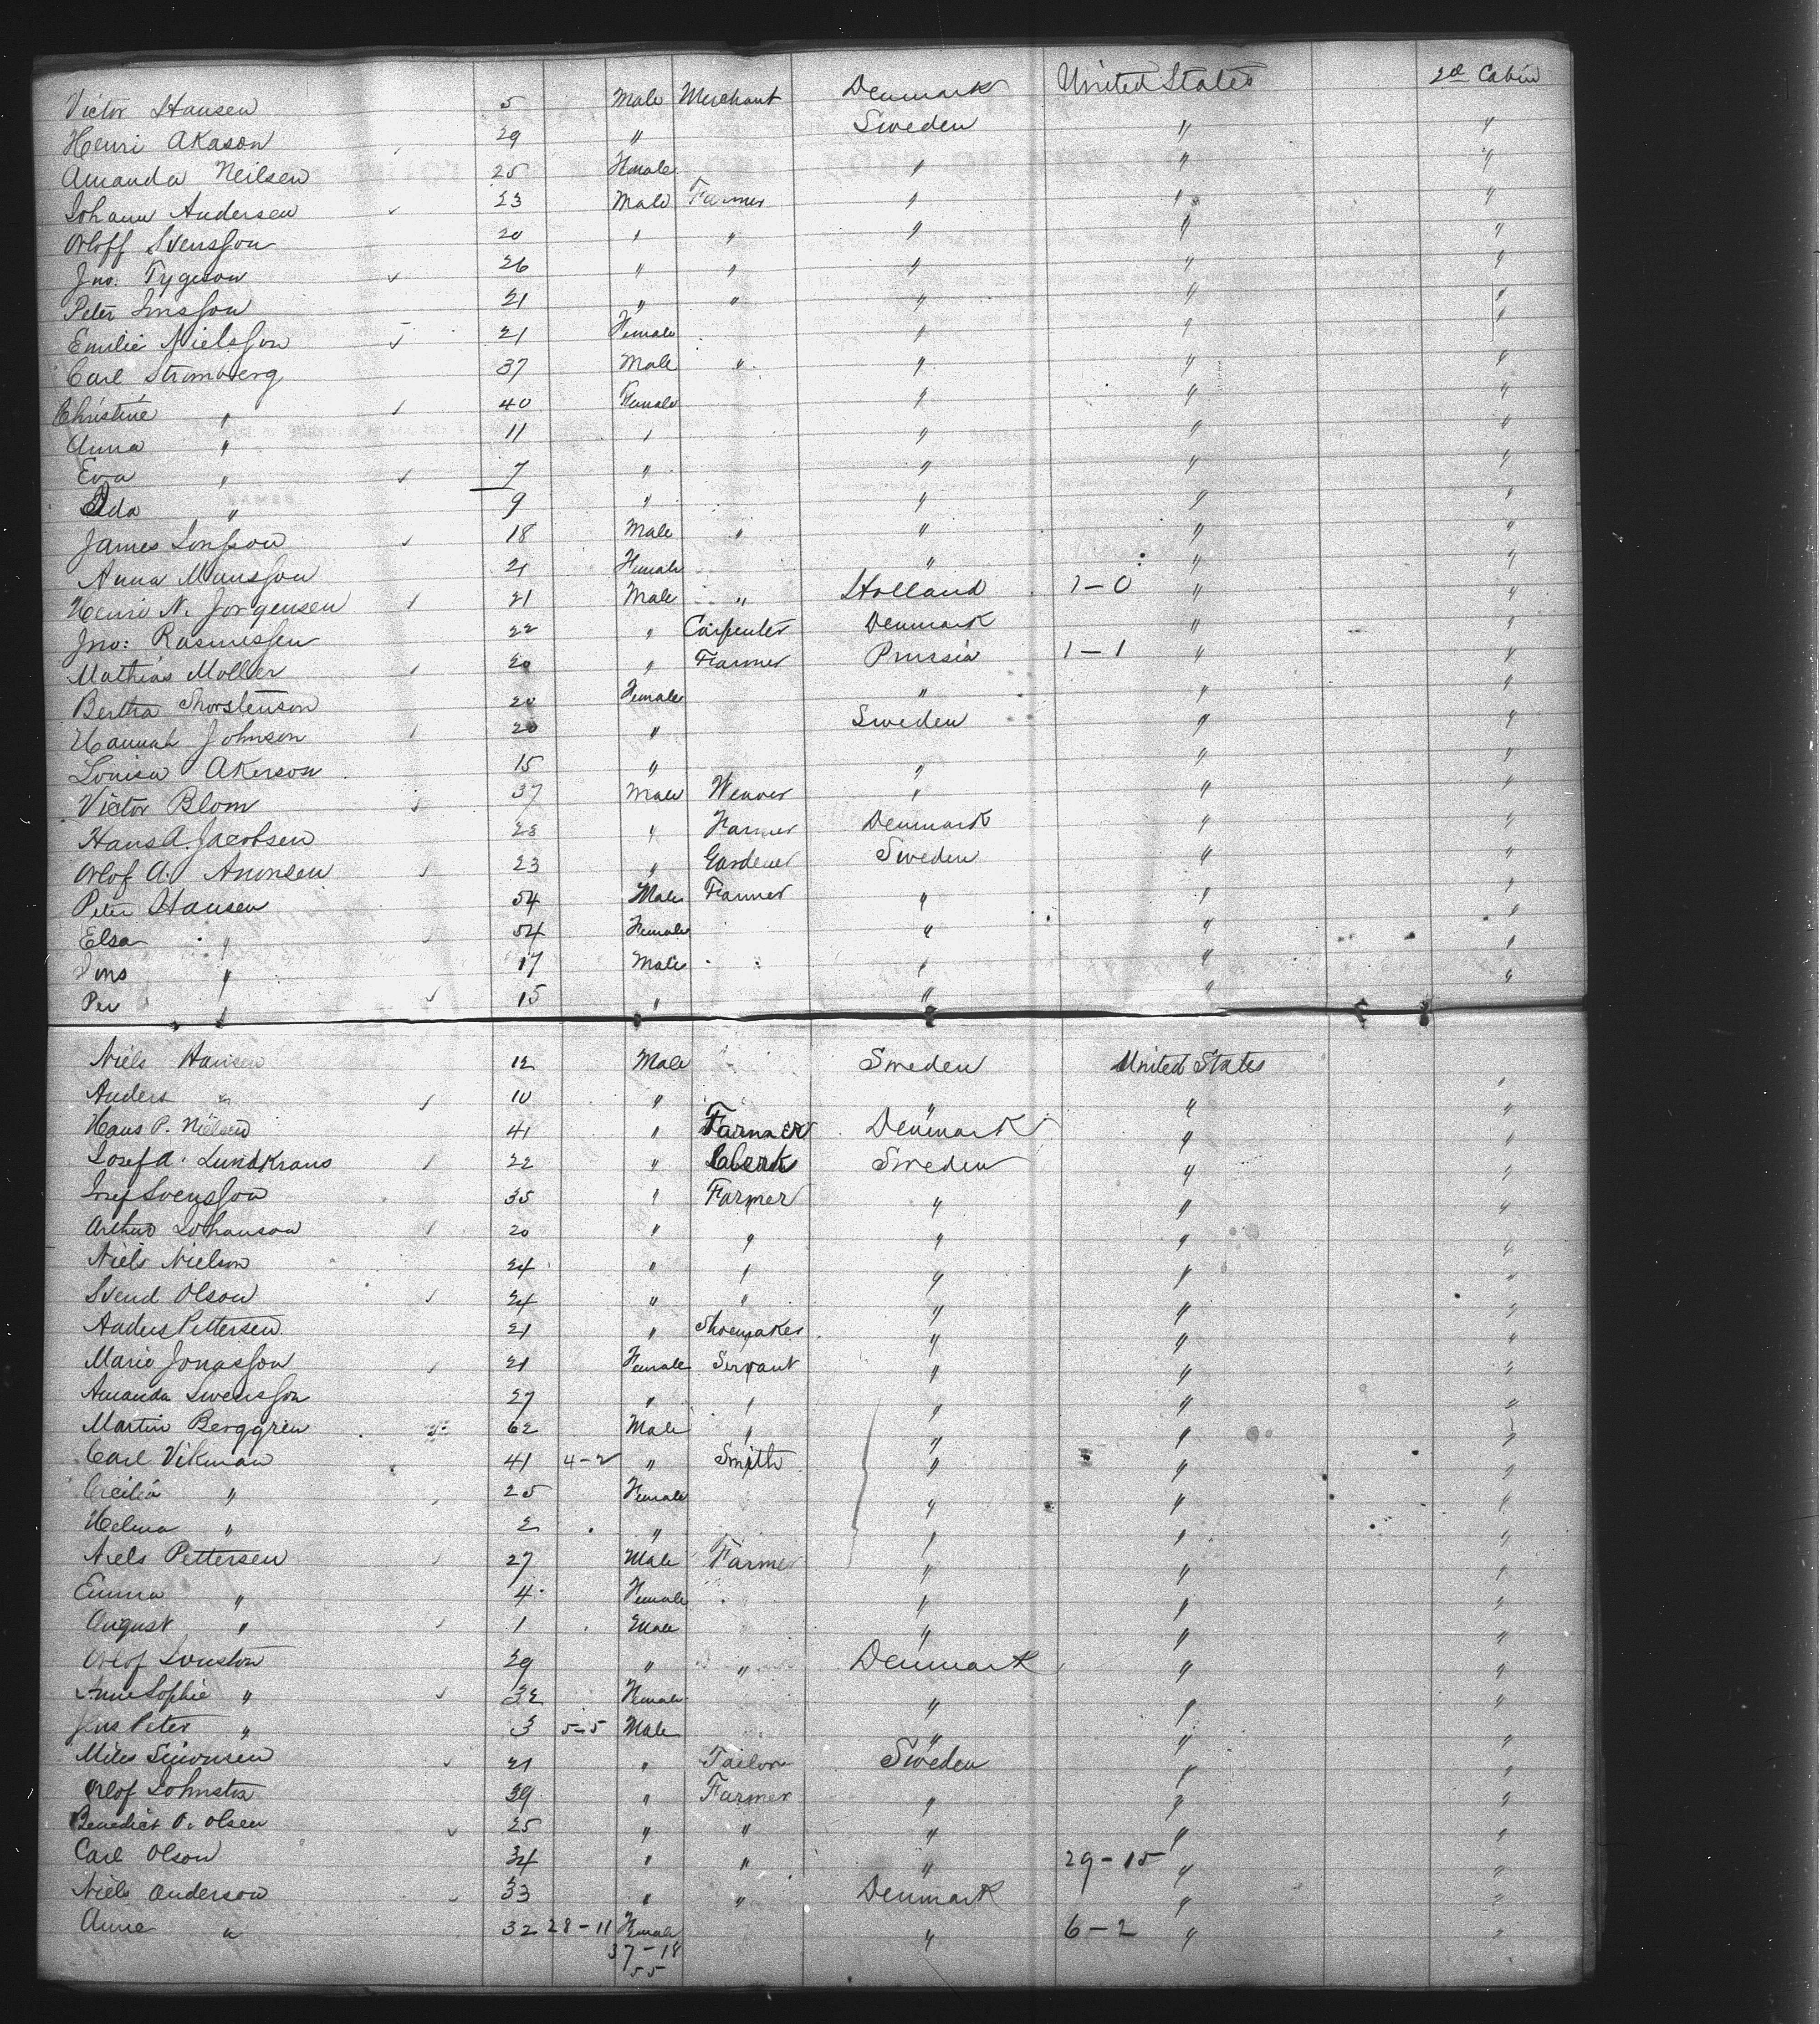 Victor Hansen 5 Male Merchant Denmark United States 2d Cabin
Henri Akason 29 " Sweden " "
Amanda Neilsen 25 Female " " "
Johann Andersen 23 Male Farmer " " "
Orloff Svensson 20 " " " " "
Jno: Tygeson 26 " " " " "
Peter 21 " " " " "
Emilie Nielsson 21 Female " " "
Carl Stromberg 37 Male " " " "
Christine " 40 Female " " "
Anna " 11 " " " "
Eva " 7 " " " "
Ada " 9 " " " "
James 18 Male " " " "
Anna Munsson 21 Female " " "
Henri N. Jorgensen 21 Male " Holland 1-0 " "
Jno: Rasmussen 22 " Carpenter Denmark " "
Mathias Moller 20 " Farmer Prussia 1-1 " "
Bertha Thorstenson 20 Female " " "
Hannah Johnson 20 " Sweden " "
Louisa Akerson 15 " " " "
Victor Blom 37 Male Weaver " " "
Hans A. Jacobsen 23 " Farmer Denmark " "
Orlof A. Anonsen 23 " Gardener Sweden " "
Peter Hansen 54 Male Farmer " " "
Elsa " 54 Female " " "
Jens " 17 Male " " "
Per " 15 " " " "
Niels Hansen 12 Male Sweden United States "
Anders " 10 " " " "
Hans P. Nielsen 41 " Farmer Denmark " "
Josef A. Lundkrans 22 " Clerk Sweden " "
Josef Svensson 35 " Farmer " " "
Arthur Johanson 20 " " " " "
Niels Nielson 24 " " " " "
Svend Olson 24 " " " " "
Anders Pettersen 21 " Shoemaker " " "
Marie Jonasson 21 Female Servant " " "
Amanda Swensson 27 " " " " "
Martin Berggren 62 Male " " " "
Carl Vikman 41 4-2 " Smith " " "
Cicilia " 25 Female " " "
Helma " 2 " " " "
Niels Pettersen 27 Male Farmer " " "
Emma " 4 Female " " "
August " 1 Male " " "
Orlof 29 " " Denmark " "
Anne Sophie " 32 Female " " "
Jens Peter " 3 5-5 Male " " "
Miles Simonsen 21 " Tailor Sweden " "
Orlof Johnston 39 " Farmer " " "
Benedict O. Olsen 25 " " " " "
Carl Olson 34 " " " 29-15 " "
Niels Anderson 33 " " Denmark " "
Anne " 32 28-11 Female " 6-2 " "
37-18
55